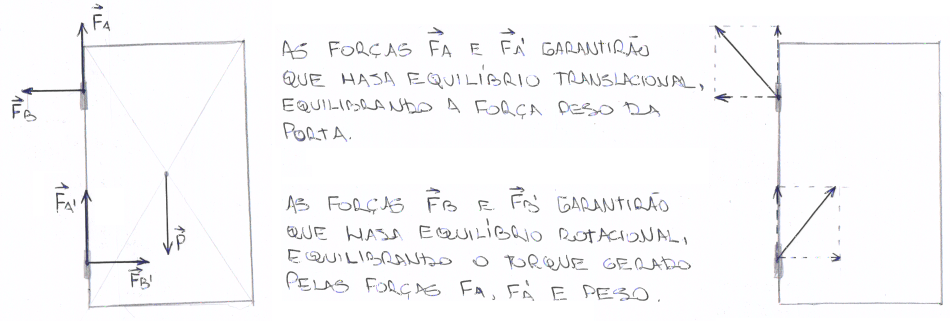 F⃗A
F⃗B
F⃗A'
P⃗
F⃗B'
AS FORÇAS F⃗A E F⃗A' GARANTIRÃO
QUE HAJA EQUILÍBRIO TRANSLACIONAL,
EQUILIBRANDO A FORÇA PESO DA
PORTA.
AS FORÇAS F⃗B E F⃗B' GARANTIRÃO
QUE HAJA EQUILÍBRIO ROTACIONAL,
EQUILIBRANDO O TORQUE GERADO
PELAS FORÇAS FA, FA' E PESO.